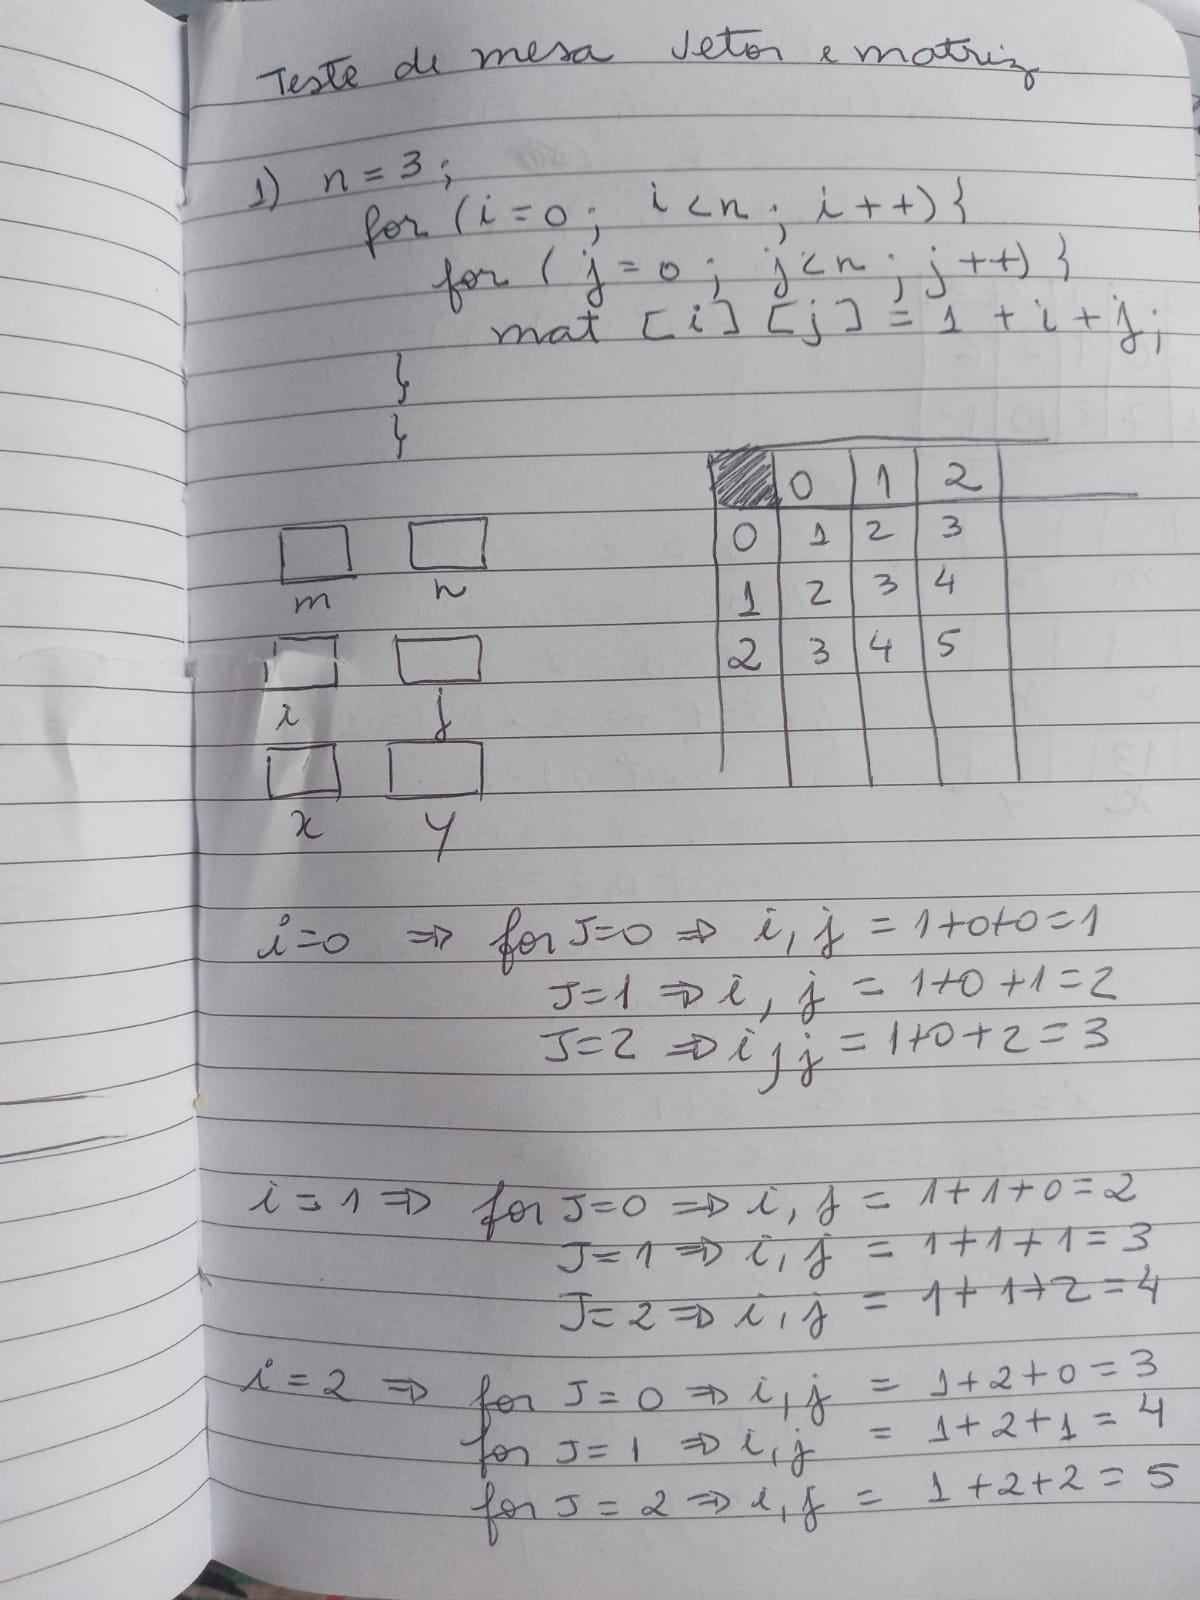 Teste de mesa Vetor e matriz
1) n = 3;
for (i=0; i<n; i++){
for (j=0; j<n; j++){
mat [i][j] = 1 + i + j;
}
}
0 1 2
0 1 2 3
1 2 3 4
2 3 4 5
m n
i j
x y
i=0 ⇒ for J=0 ⇒ i,j = 1+0+0=1
J=1 ⇒ i,j = 1+0+1=2
J=2 ⇒ i,j = 1+0+2=3
i=1 ⇒ for J=0 ⇒ i,j = 1+1+0=2
J=1 ⇒ i,j = 1+1+1=3
J=2 ⇒ i,j = 1+1+2=4
i=2 ⇒ for J=0 ⇒ i,j = 1+2+0=3
for J=1 ⇒ i,j = 1+2+1=4
for J=2 ⇒ i,j = 1+2+2=5